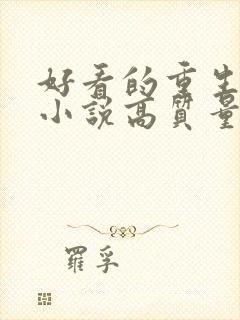 好看的重生
小说高质量
羅孚